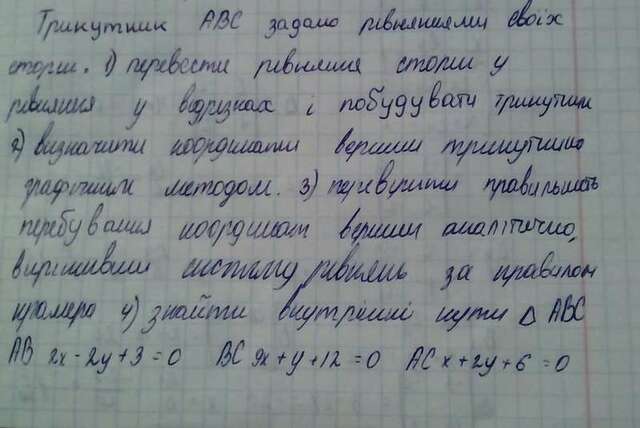 Трикутник ABC задано рівняннями своїх
сторін. 1) перевести рівняння сторін у
рівняння у відрізках і побудувати трикутник
2) визначити координати вершин трикутника
графічним методом. 3) перевірити правильність
перебування координат вершин аналітично,
вирішивши систему рівнянь за правилом
крамера 4) знайти внутрішні кути Δ ABC
AB 2x-2y+3=0 BC 9x+y+12=0 AC x+2y+6=0